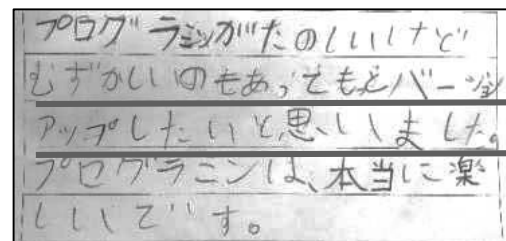 プログラミンがたのしいけど
むずかしいのもあってもとバージョン
アップしたいと思いました。
プログラミンは、本当に楽
しいです。